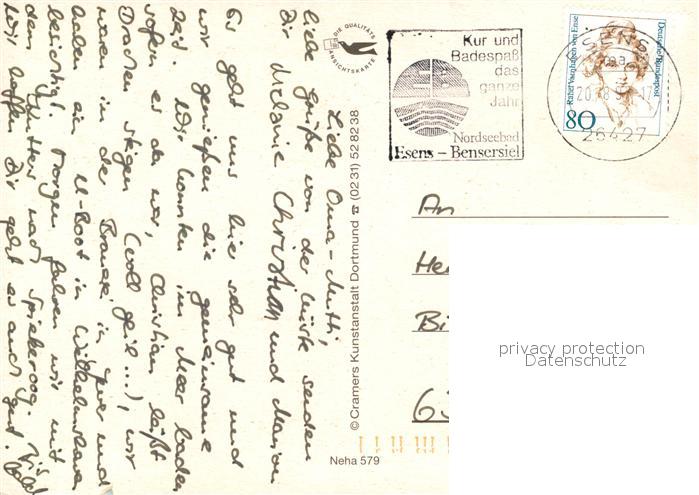 Liebe Oma-Mutti,
liebe Grüße von der Küste senden
Dir Melanie, CHRISTIAN und Marion
Es geht uns hier sehr gut und
wir genießen die gemeinsame
Zeit. Wir konnten im Meer baden
sofern es da war, Christian läßt
Drachen steigen (voll geil...), wir
waren in der Brauerei in Jever und
haben ein U-Boot in Wilhelmshaven
besichtigt. Morgen fahren wir mit
dem Kutter nach Spiekeroog.
Wir hoffen Dir geht es auch gut. Bis
Bald
DIE QUALITÄTS
ANSICHTSKARTE
© Cramers Kunstanstalt Dortmund ☎ (0231) 528238
Neha 579
Kur und
Badespaß
das
ganze
Jahr
Nordseebad
Esens – Bensersiel
Rahel Varnhagen von Ense
Deutsche Bundespost
80
26427
An
privacy protection
Datenschutz